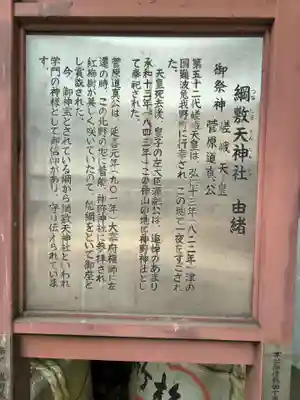 綱敷天神社 由緒
御祭神 嵯峨天皇
菅原道真公
第五十二代嵯峨天皇は、弘仁十三年(八二二年)津の
国難波兎我野町に行幸され この地で一夜をすごされ
た。
天皇死去後、皇子の左大臣源融公は、追悼のあまり
承和十年(八四三年)この神山の地に神野神社とし
て奉祀された。
菅原道真公は、延喜元年(九〇一年)大宰府権師に左
遷の時、この北野の地に着船、神野神社に参拝され
紅梅樹が美しく咲いていたので 船綱をといて御座と
し賞翫された。
今、御神宝とされている綱から綱敷天神社といわれ
学問の神様として御信仰があり、守り伝えられていま
す。